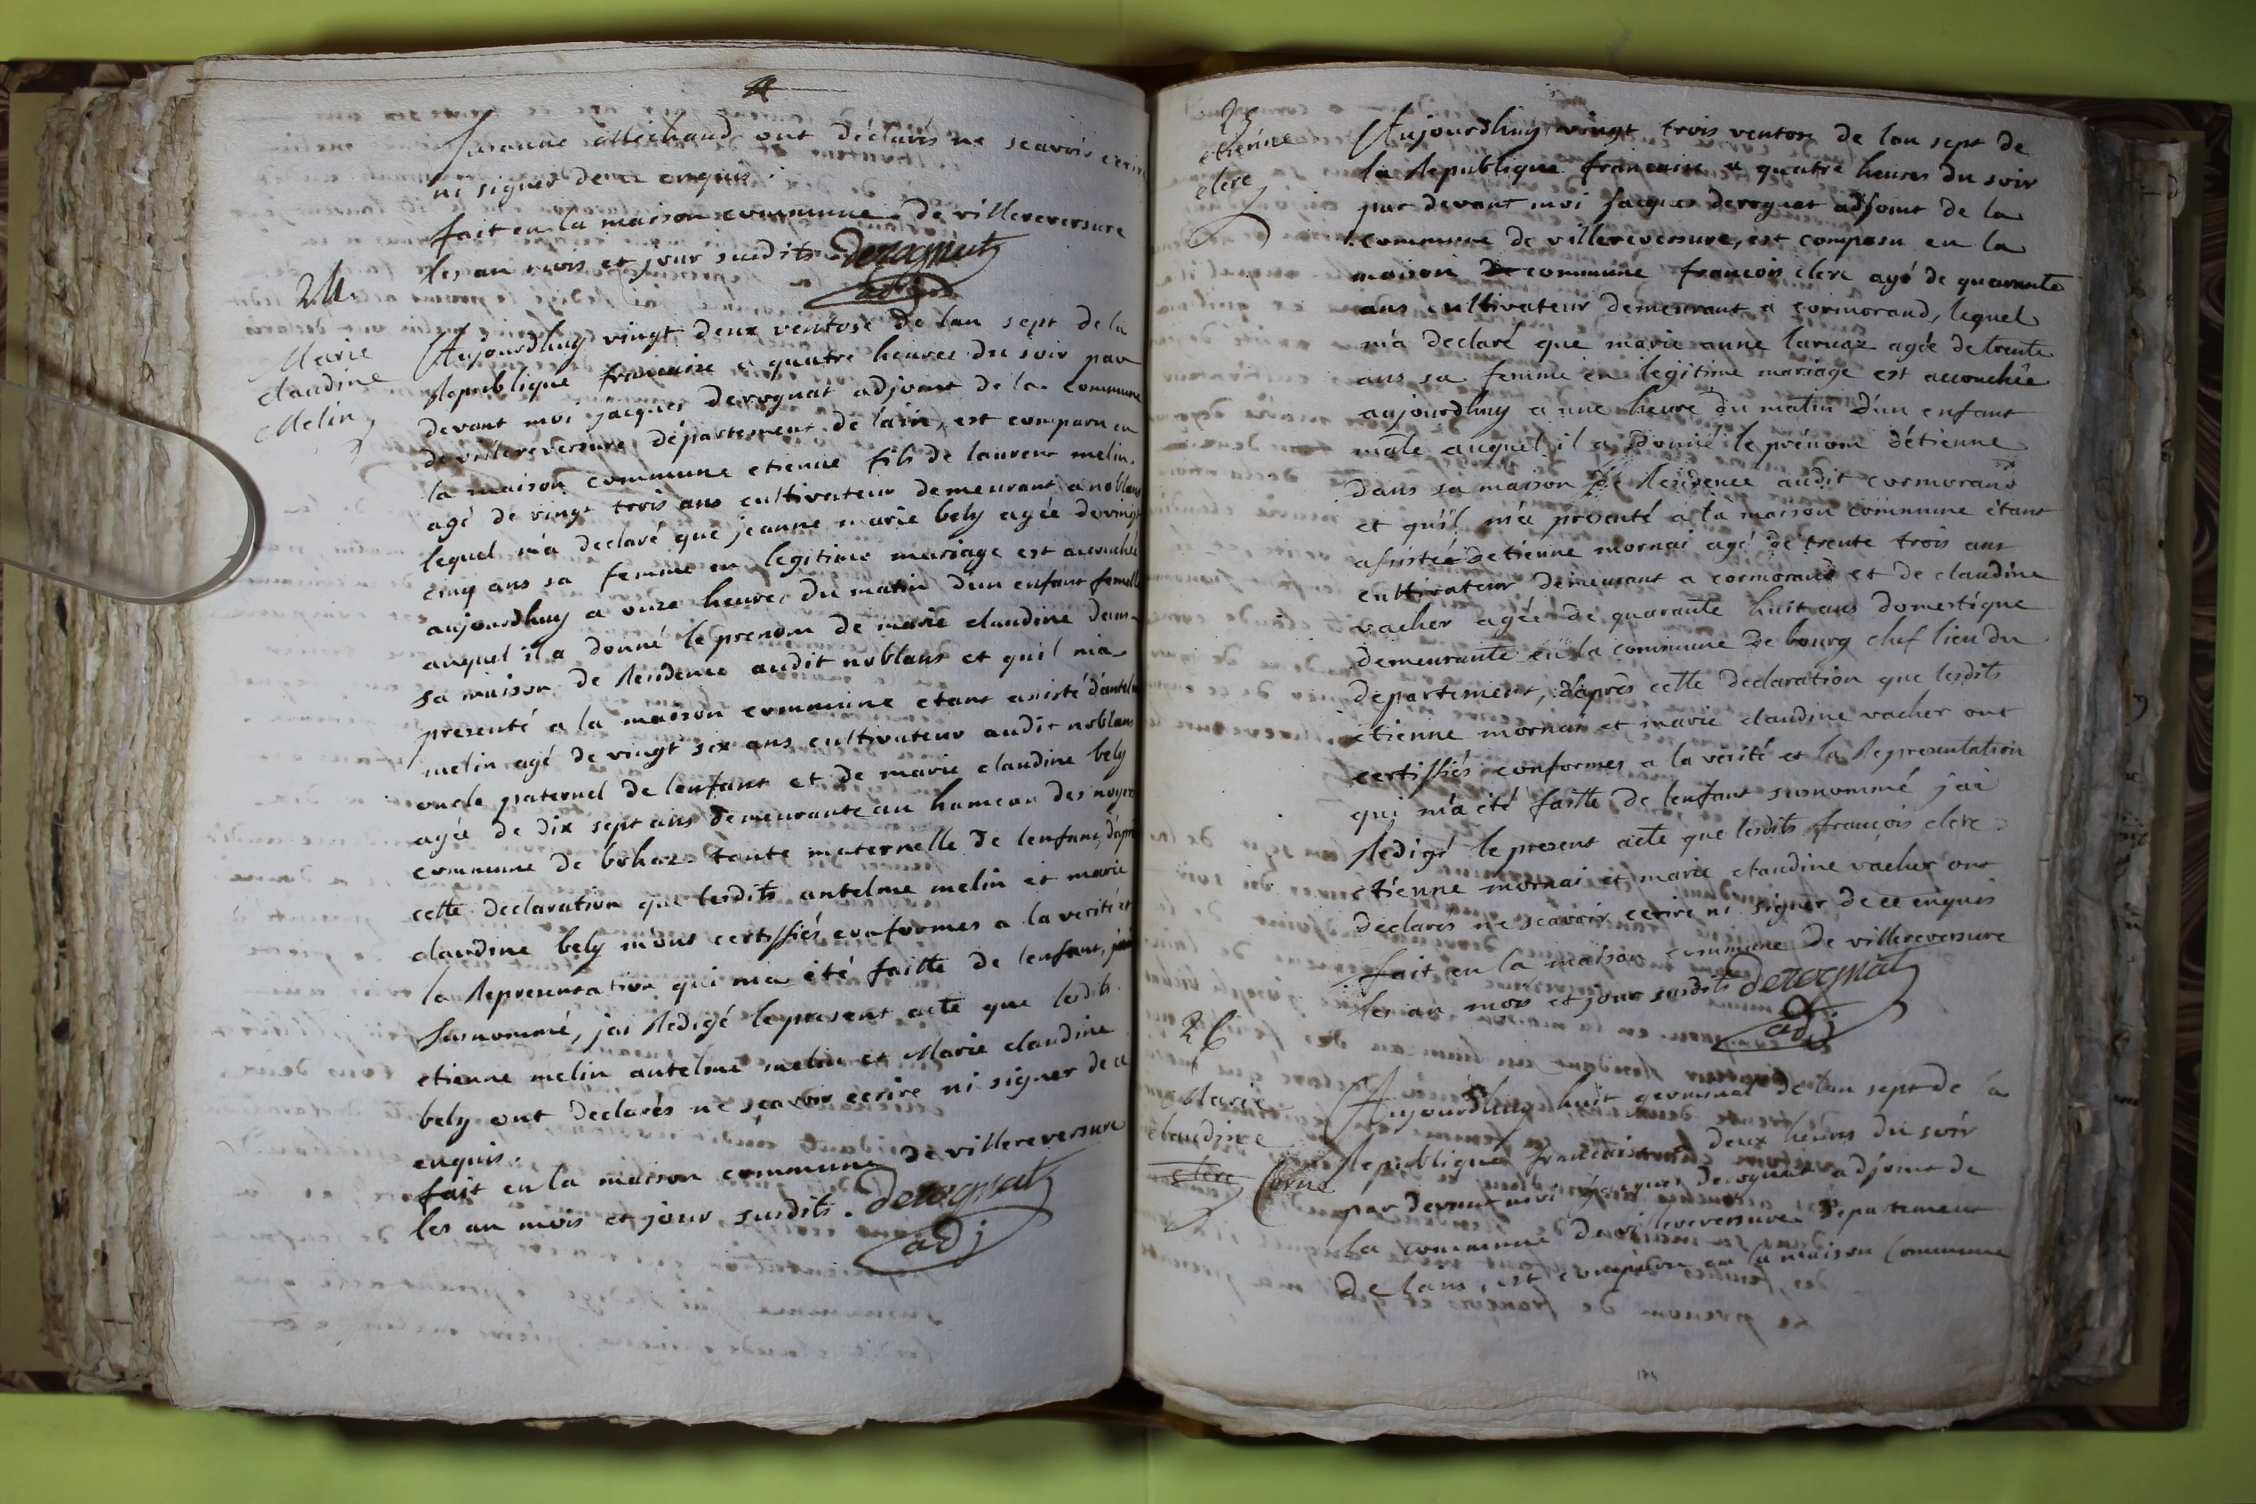 Susanne Michaud ont déclarés ne scavoir ecrire
ni signer de ce enquis.
fait en la maison commune de villereversure
les an mois et jour susdits. Derognat
adj
24.
Marie
claudine
Melin
Aujourdhuy vingt deux ventose de lan sept de la
Republique francaise a quatre heures du soir par
devant moi jacques derognat adjoint de la commune
de villereversure département de lain, est comparu en
la maison commune etienne fils de laurent melin
agé de vingt trois ans cultivateur demeurant a noblans
lequel m'a declaré que jeanne marie bely agée de vingt
cinq ans sa femme en legitime mariage est accouchée
aujourdhuy a onze heures du matin d'un enfant femelle
auquel il a donné le prenom de marie claudine dans
sa maison de Residence audit noblans et qu'il m'a
presenté a la maison commune etant assisté d'antelme
melin agé de vingt six ans cultivateur audit noblans
oncle paternel de lenfant et de marie claudine bely
agée de dix sept ans demeurante au hameau des noyers
commune de bohaz tante maternelle de lenfant, d'après
cette declaration que lesdits antelme melin et marie
claudine bely m'ont certiffiés conformes a la verité et
la Representation qui m'a été faitte de lenfant, j'ai
susnommé, j'ai Redigé le present acte que lesdits
etienne melin antelme melin et Marie claudine
bely ont declarés ne sçavoir ecrire ni signer de ce
enquis.
fait en la maison commune de villereversure
les an mois et jour susdits. Derognat
adj
25
etienne
clerc
Aujourdhuy vingt trois ventose de lan sept de
la Republique francaise a quatre heures du soir
par devant moi jacques derognat adjoint de la
commune de villereversure, est comparu en la
maison de commune francois clerc agé de quarante
ans cultivateur demeurant a cormorand, lequel
m'a declaré que marie anne laruaz agée de trente
ans sa femme en legitime mariage est accouchée
aujourdhuy a une heure du matin d'un enfant
male auquel il a donné le prénom d'étienne
dans sa maison de Residence audit cormorand
et qu'il m'a presenté a la maison commune étant
assistée detienne mornai agé de trente trois ans
cultivateur demeurant a cormorand et de claudine
vacher agée de quarante huit ans domestique
demeurante en la commune de bourg chef lieu du
département, d'après cette declaration que lesdits
etienne mornai et marie claudine vacher ont
certiffiés conformes a la vérité et la Representation
qui m'a été faitte de lenfant susnommé j'ai
Redigé le present acte que lesdits françois clerc
etienne mornai et marie claudine vacher ont
declarés ne scavoir ecrire ni signer de ce enquis
fait en la maison commune de villereversure
les an mois et jour susdits Derognat
adj
26
Marie
claudine
clerc Corne
Aujourdhuy huit germinal de lan sept de la
Republique francaise a deux heures du soir
par devant moi jacques derognat adjoint de
la commune de villereversure département
de lain, est comparu en la maison commune
184